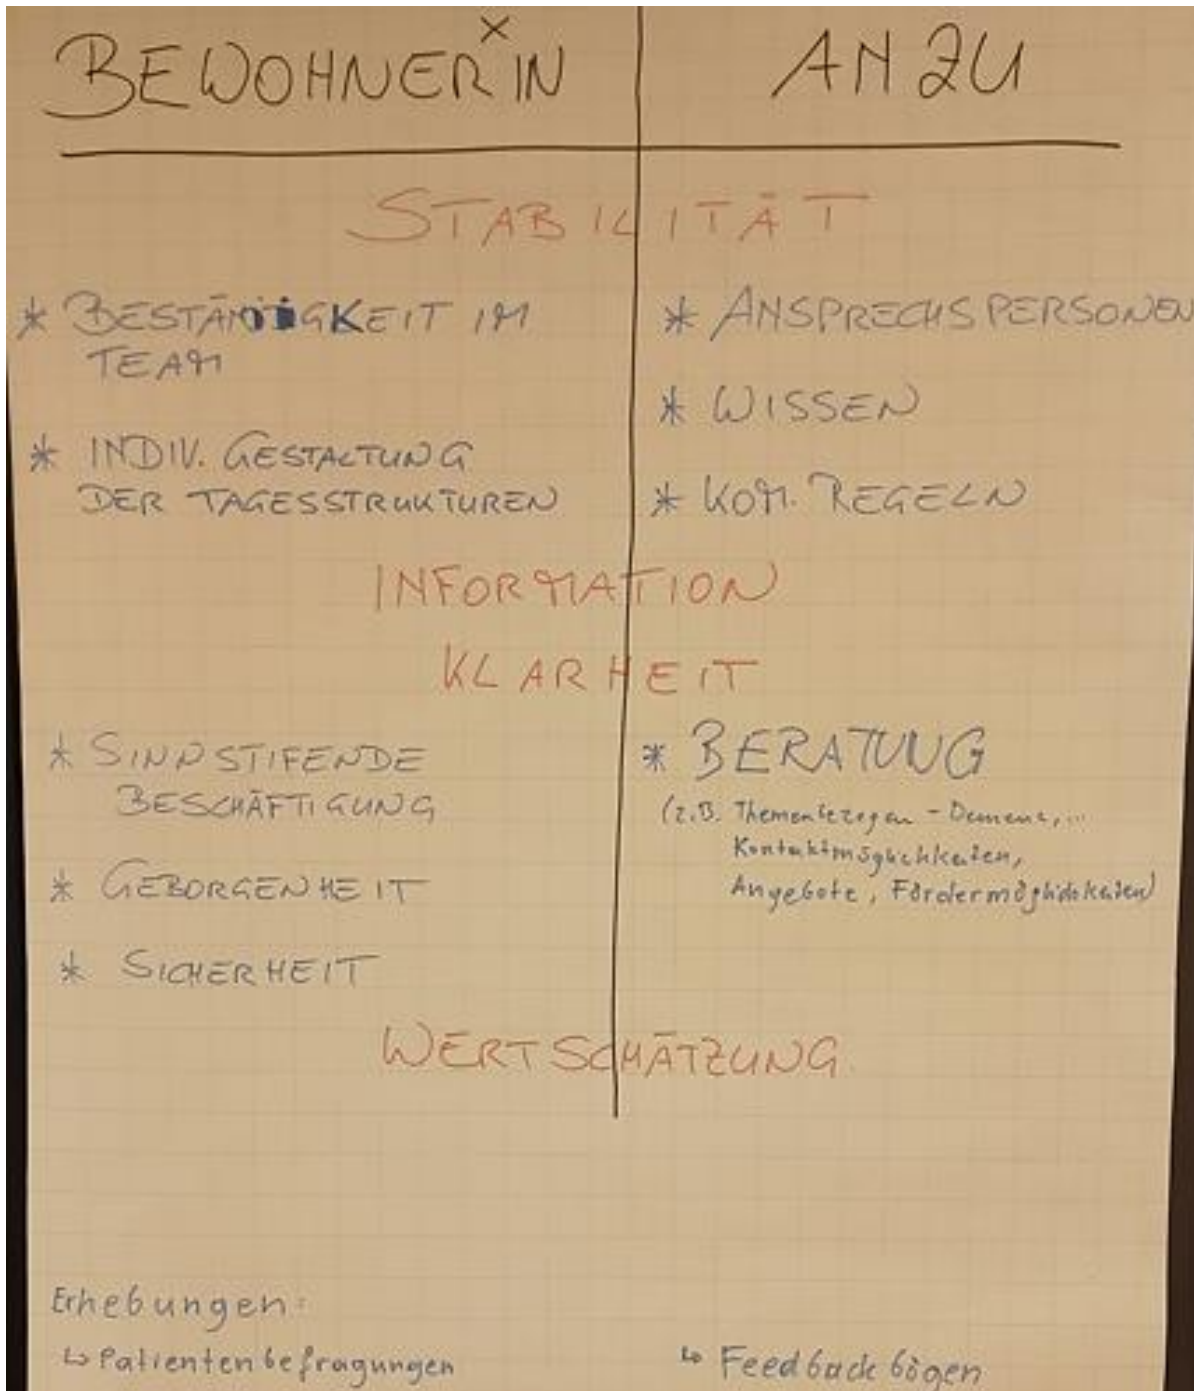 BEWOHNER*IN
ANZU
STABILITÄT
* BESTÄNDIGKEIT IM
TEAM
* INDIV. GESTALTUNG
DER TAGESSTRUKTUREN
* ANSPRECHSPERSONEN
* WISSEN
* KOM. REGELN
INFORMATION
KLARHEIT
* SINNSTIFENDE
BESCHÄFTIGUNG
* GEBORGENHEIT
* SICHERHEIT
* BERATUNG
(z.B. Themenbezogen - Demenz, ...
Kontaktmöglichkeiten,
Angebote, Fördermöglichkeiten)
WERTSCHÄTZUNG
Erhebungen:
↳ Patientenbefragungen
↳ Feedbackbögen